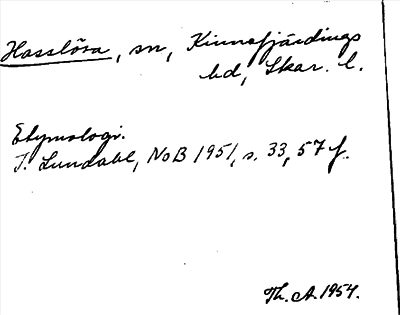 Hasslösa, sn, Kinnefjärdings
hd, Skar. l.
Etymologi.
I. Lundahl, NoB 1951, s. 33, 57 f.
Th. A. 1954.